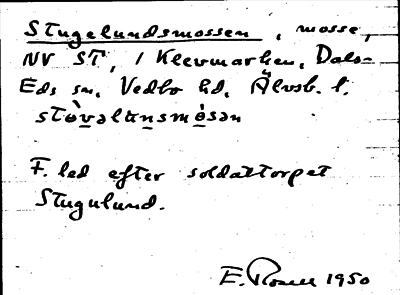 Stugelundsmossen, mosse,
NV ST, i Klevmarken, Dals-
Eds sn, Vedbo hd, Älvsb. l.
stòvəlɯnsmòsən
F. led efter soldattorpet
Stugulund.
E. Rosell 1950